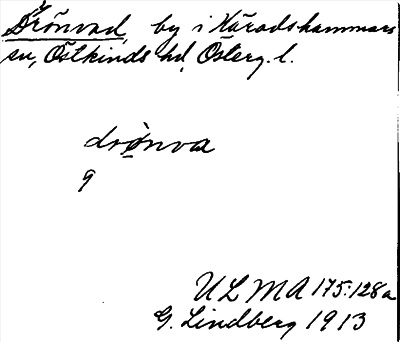 Drönvad, by i Häradshammars
sn, Östkinds hd, Österg. l.
drònva
9
ULMA 175:128a
G. Lindberg 1913